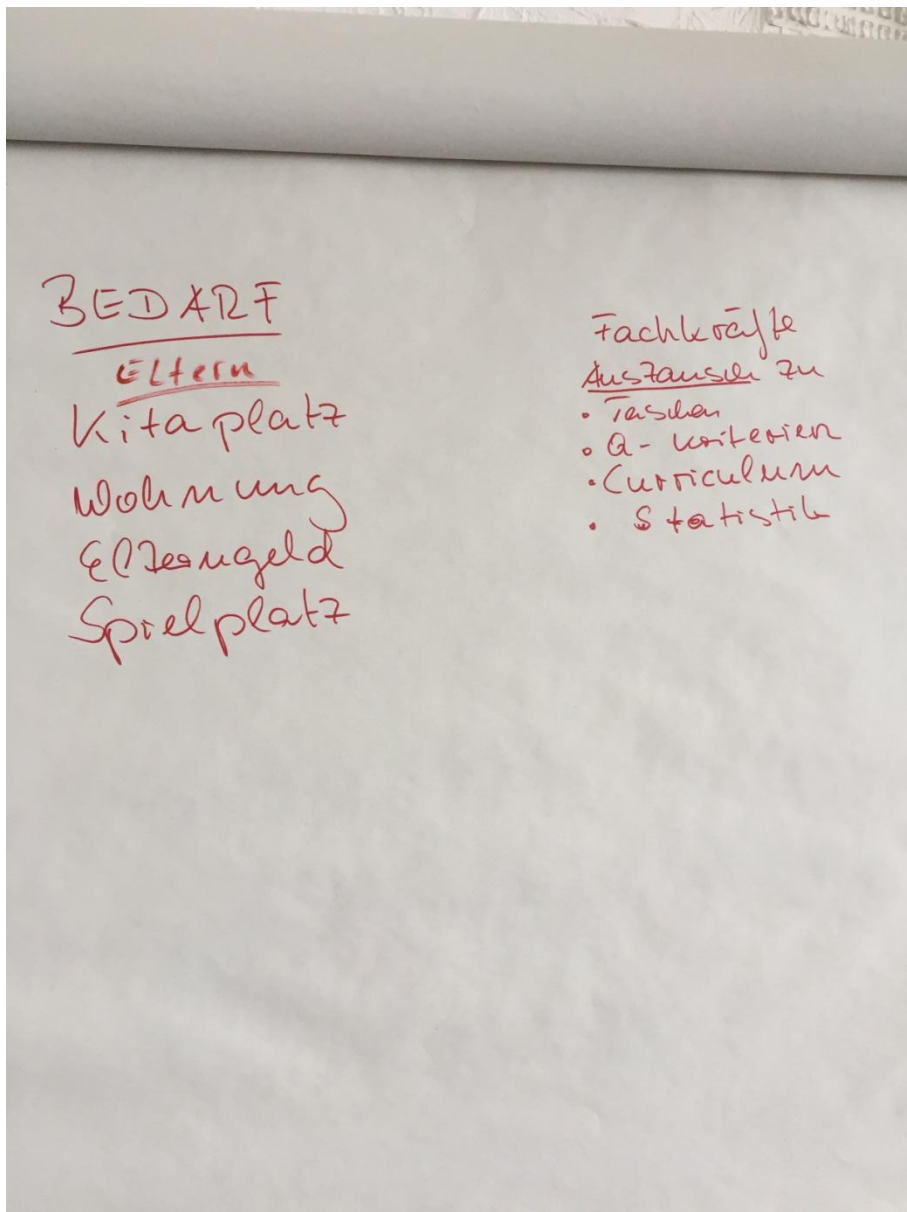 BEDARF
Eltern
Kitaplatz
Wohnung
Elterngeld
Spielplatz
Fachkräfte
Austausch zu
• Taschen
• Q-Kriterien
• Curriculum
• Statistik